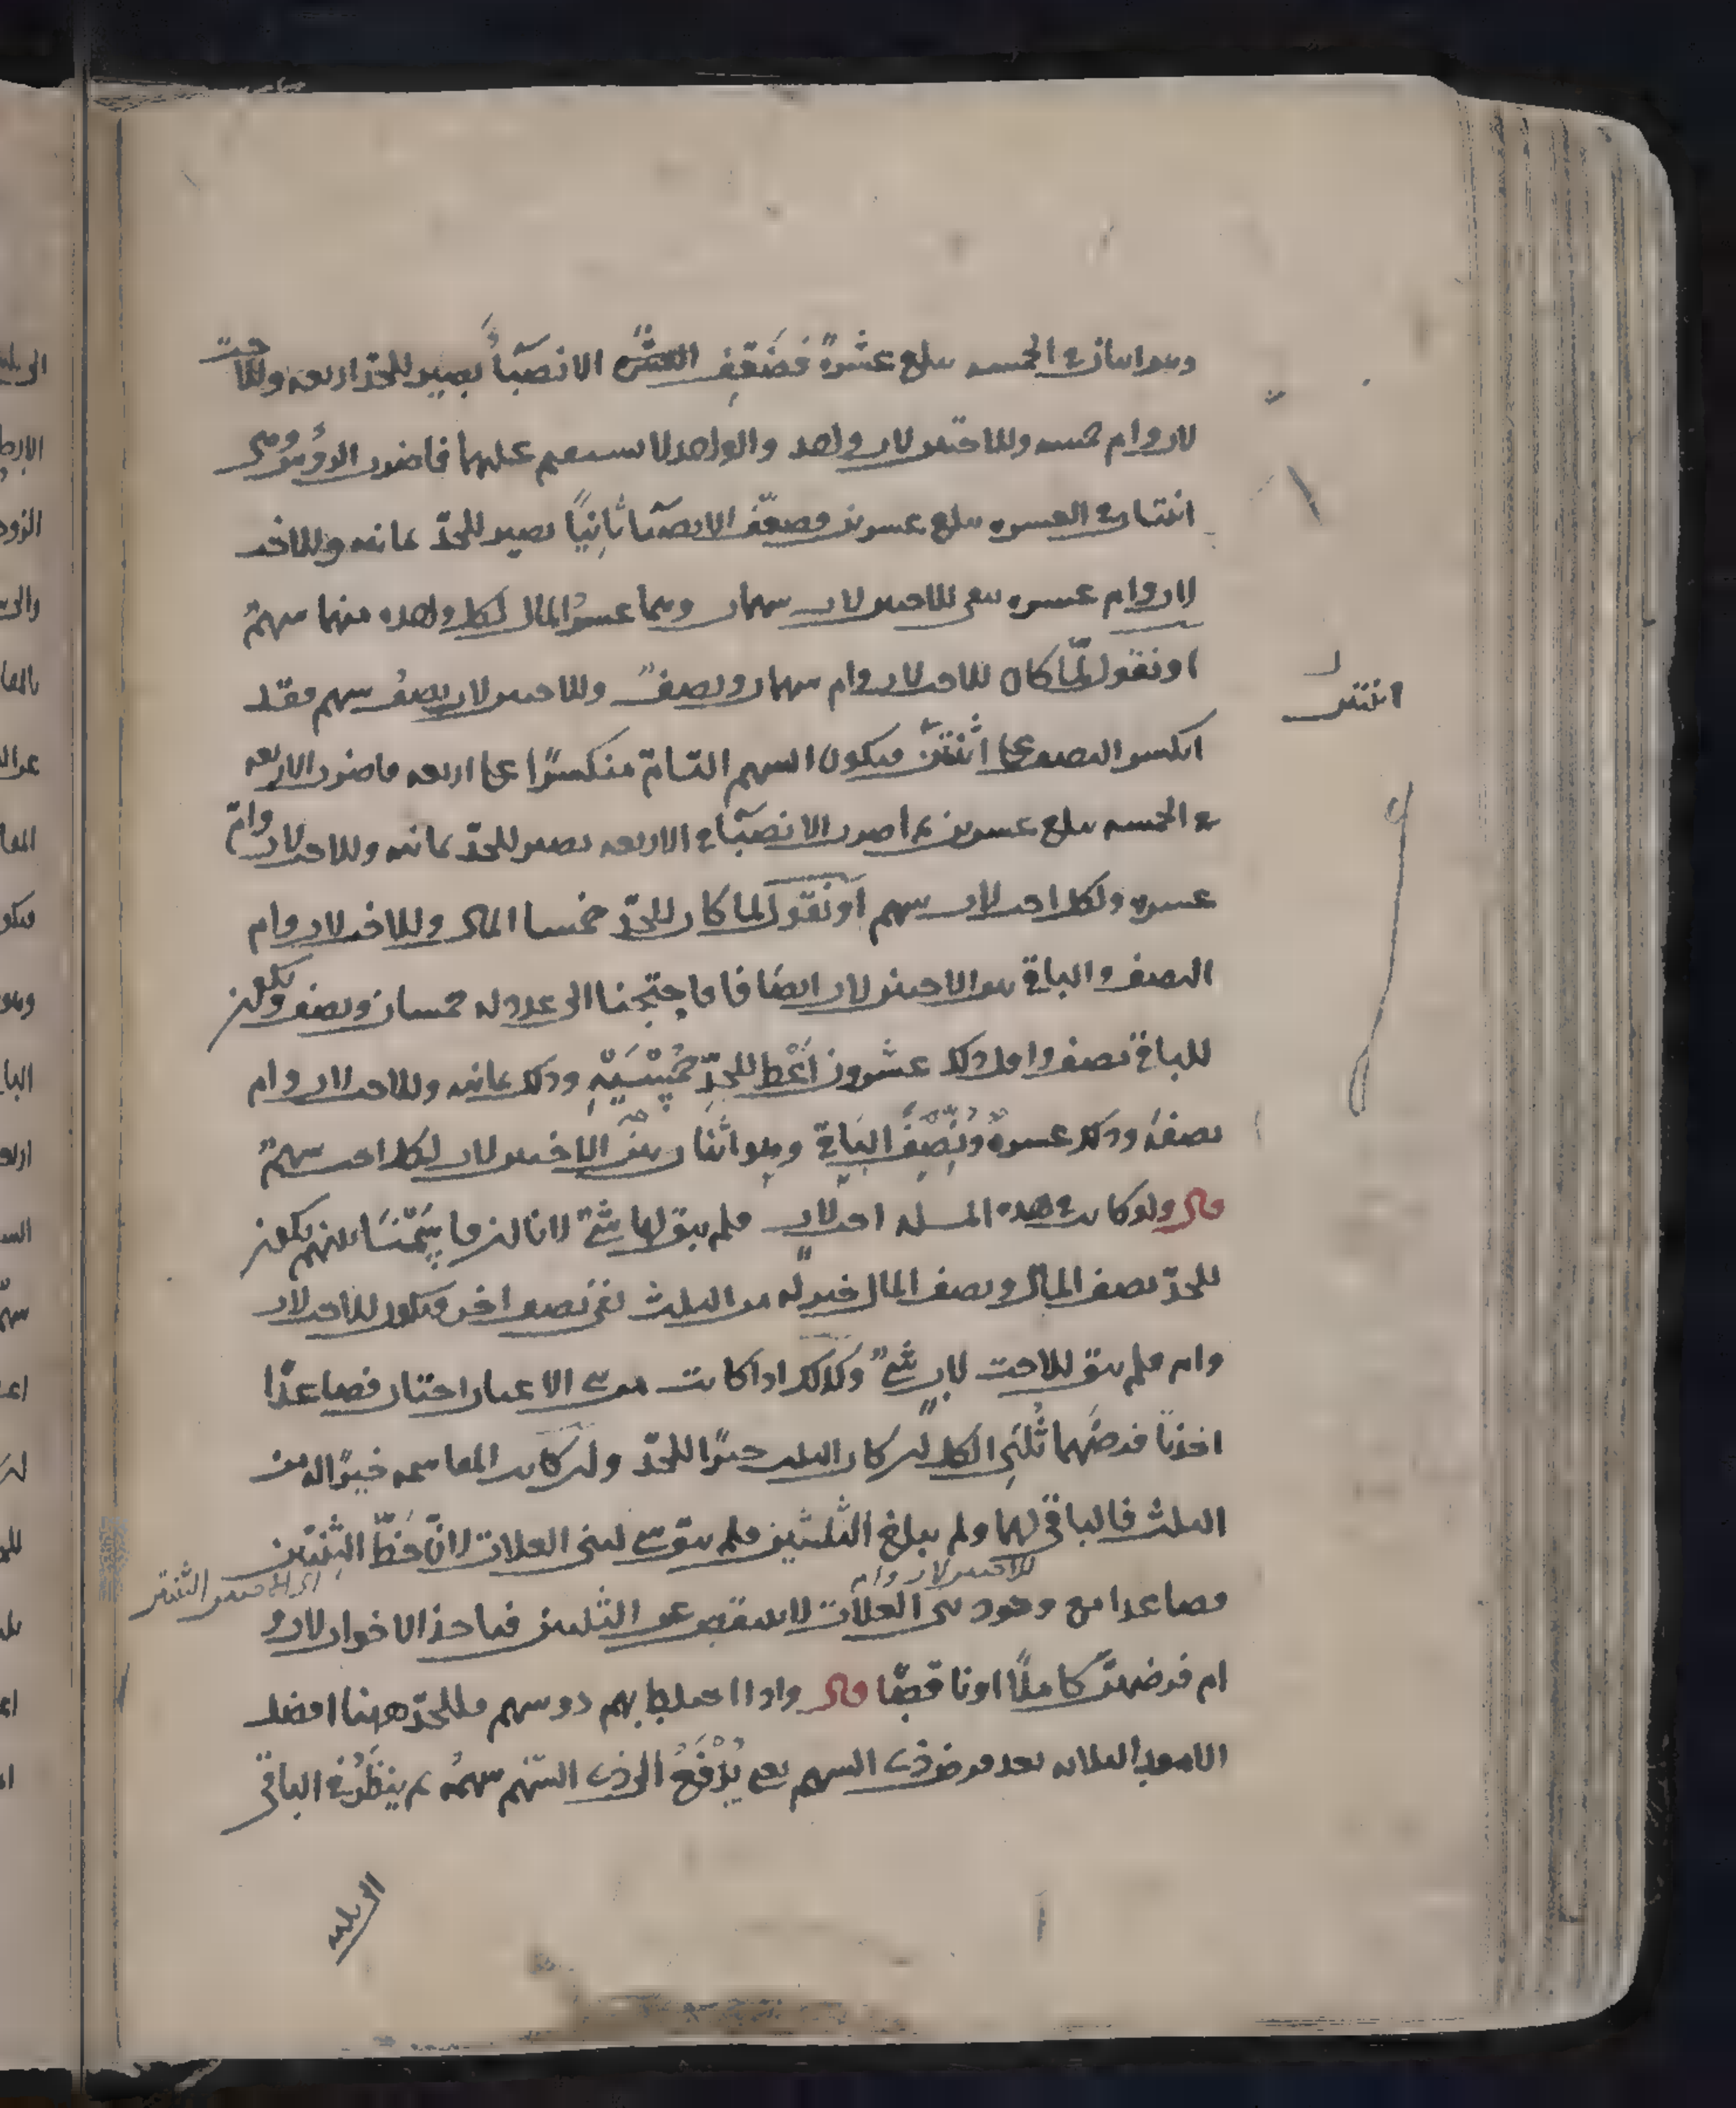 وهو اثنان في الخمسه يبلغ عشرة فضعف العشرة الانصباء يصير للجد اربعه وللاخت
لاب وام خمسه وللاختين لاب واحد والواحد لا يستقيم عليهما فاضرب الرؤس وهي
اثنتان في العشره يبلغ عشرين فضعف الانصباء ثانيا يصير للجد ثمانيه وللاخت
لاب وام عشره بقي للاختين لاب سهمان وهما عشر المال لكل واحده منهما سهم
او نقول لما كان للاخت لاب وام سهمان ونصف وللاختين لاب نصف سهم فقد
انكسر النصف على اثنتين فيكون السهم التام منكسرا على اربعه فاضرب الاربعه
في الخمسه يبلغ عشرين ثم اضرب الانصباء في الاربعه يصير للجد ثمانيه وللاخت لاب وام
عشره ولكل اخت لاب سهم او نقول لما كان للجد خمسا المال وللاخت لاب وام
النصف والباقي هو للاختين لاب ايضا فاحتجنا الى عدد له خمسان ونصف ويكون
للباقي نصف واقل ذلك عشرون اعط للجد خمسيه وذلك ثمانيه وللاخت لاب وام
نصفه وذلك عشرة ونصف الباقي وهو اثنان بين الاختين لاب لكل اخت سهم
قال ولو كانت في هذه المسله اخت لاب فلم يبق لها شئ لانا لنر قاسمنا بينهم يكون
للجد نصف المال ونصف المال خير له من الثلث بقي نصف اخر فيكون للاخت لاب
وام فلم يبق للاخت لاب شئ وكذلك اذا كانت من بني الاعيان اختان فصاعدا
اخذتا فرضهما ثلثي الكل لنر كان الثلث خيرا للجد ولنر كانت المقاسمه خيرا له من
الثلث فالباقي لهما ولم يبلغ الثلثين فلم يبق شئ لبني العلات لان حظ الثنتين
فصاعدا مع وجود بني العلات لا ينقص عن الثلثين فياخذ الاخوات لاب و
ام فرضهن كاملا او ناقصا قال واذا اختلط بهم ذو سهم فللجد ههنا افضل
الامور الثلاثه بعد فرض ذي السهم يعني يدفع الى ذي السهم سهمه ثم ينظر في الباقي
اثنتين
للاختين لاب وام